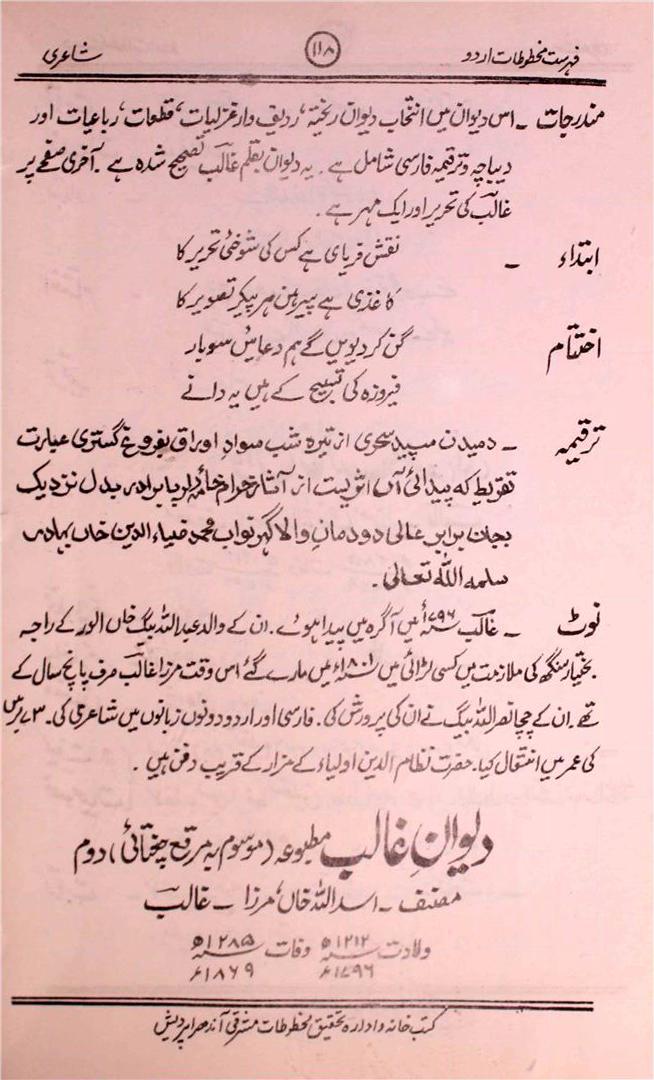 فہرست مخطوطات اردو ۱۱۸ شاعری
مندرجات ۔ اس دیوان میں انتخاب دیوان ریختہ، ردیف وار غزلیات، قطعات، رباعیات اور
دیباچہ و ترقیمہ فارسی شامل ہے ۔ یہ دیوان بقلم غالبؔ تصحیح شدہ ہے ۔ آخری صفحے پر
غالبؔ کی تحریر اور ایک مہر ہے ۔
ابتداء ۔ نقش فریادی ہے کس کی شوخئ تحریر کا
کاغذی ہے پیرہن ہر پیکر تصویر کا
اختتام گن کر دیویں گے ہم دعائیں سو بار
فیروزہ کی تسبیح کے ہیں یہ دانے
ترقیمہ ۔ دمیدن سپیدۂ سحری از تیرہ شب سواد اوراق بفروغ گستری عبارت
تقریظ کہ پیدائی آں اثریست از آثار خرام خامۂ دل با برادر بدل نزدیک
بجان برابر عالی دودمان والا گہر نواب محمد ضیاء الدین خاں بہادر
سلمہ اللہ تعالیٰ ۔
نوٹ ۔ غالبؔ ۱۷۹۶ء میں آگرہ میں پیدا ہوئے ۔ ان کے والد عبداللہ بیگ خاں الور کے راجہ
بختیار سنگھ کی ملازمت میں کسی لڑائی میں ۱۸۰۱ء میں مارے گئے اس وقت مرزا غالبؔ صرف پانچ سال کے
تھے ۔ ان کے چچا نصراللہ بیگ نے ان کی پرورش کی ۔ فارسی اور اردو دونوں زبانوں میں شاعری کی ۔ ۷۳ برس
کی عمر میں انتقال کیا ۔ حضرت نظام الدین اولیاء کے مزار کے قریب دفن ہیں ۔
دیوانِ غالب مطبوعہ (موسوم بہ مرقع چغتائی) دوم
مصنف ۔ اسد اللہ خاں، مرزا ۔ غالبؔ
ولادت ۱۲۱۲ھ وفات ۱۲۸۵ھ
۱۷۹۶ء ۱۸۶۹ء
کتب خانہ و ادارہ تحقیق مخطوطات مشرقی آندھرا پردیش